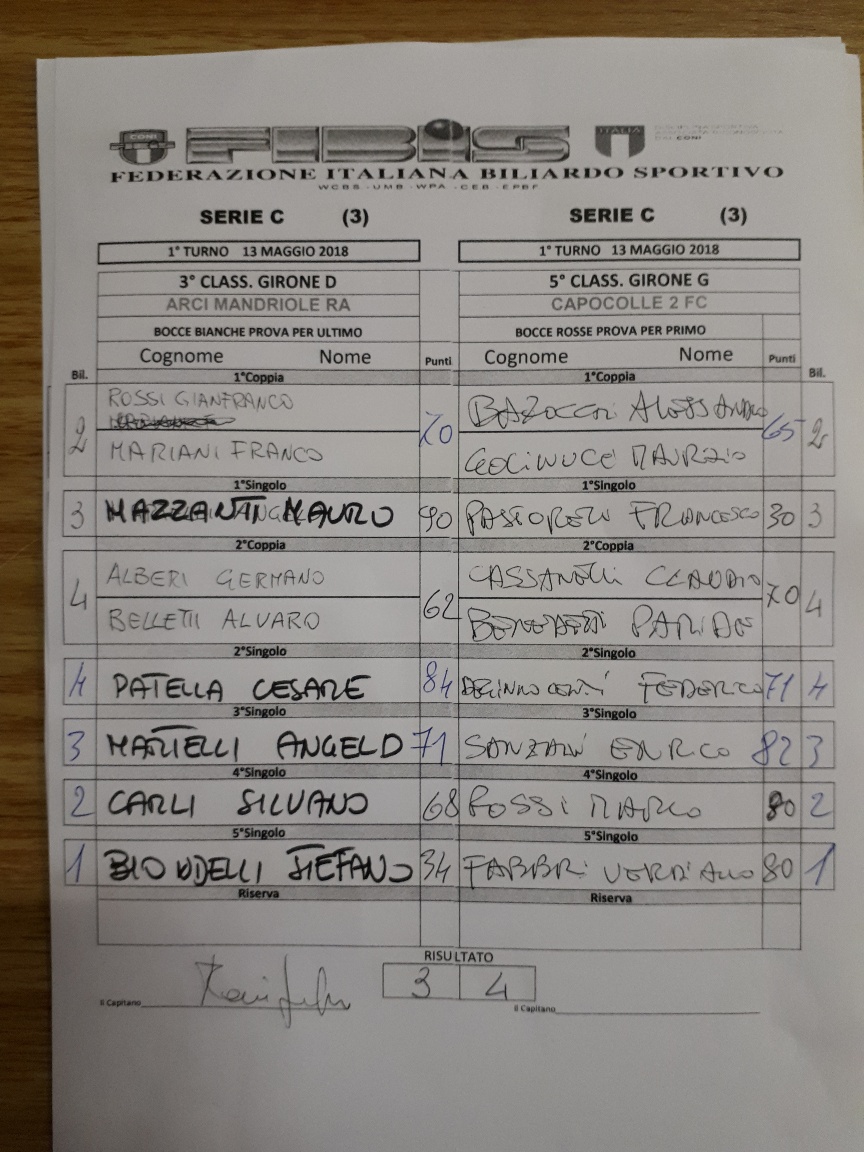 CONI
FIBIS
ITALIA
CONI
FEDERAZIONE ITALIANA BILIARDO SPORTIVO
WCBS - UMB - WPA - CEB - EPBF
SERIE C (3) SERIE C (3)
1° TURNO 13 MAGGIO 2018 1° TURNO 13 MAGGIO 2018
3° CLASS. GIRONE D 5° CLASS. GIRONE G
ARCI MANDRIOLE RA CAPOCOLLE 2 FC
BOCCE BIANCHE PROVA PER ULTIMO BOCCE ROSSE PROVA PER PRIMO
Cognome Nome Punti Cognome Nome Punti
Bil. 1°Coppia 1°Coppia Bil.
ROSSI GIANFRANCO
2 70 65 2
MARIANI FRANCO MAURIZIO
1°Singolo 1°Singolo
3 MAZZANTI MAURO 90 FRANCESCO 30 3
2°Coppia 2°Coppia
ALBERI GERMANO CLAUDIO
4 62 70 4
BELLETTI ALVARO PARIDE
2°Singolo 2°Singolo
4 PATELLA CESARE 84 FEDERICO 71 4
3°Singolo 3°Singolo
3 MARTELLI ANGELO 71 SANZANI ENRICO 82 3
4°Singolo 4°Singolo
2 CARLI SILVANO 68 ROSSI MARCO 80 2
5°Singolo 5°Singolo
1 STEFANO 34 FABBRI VERDIANO 80 1
Riserva Riserva
RISULTATO
3 4
Il Capitano Il Capitano